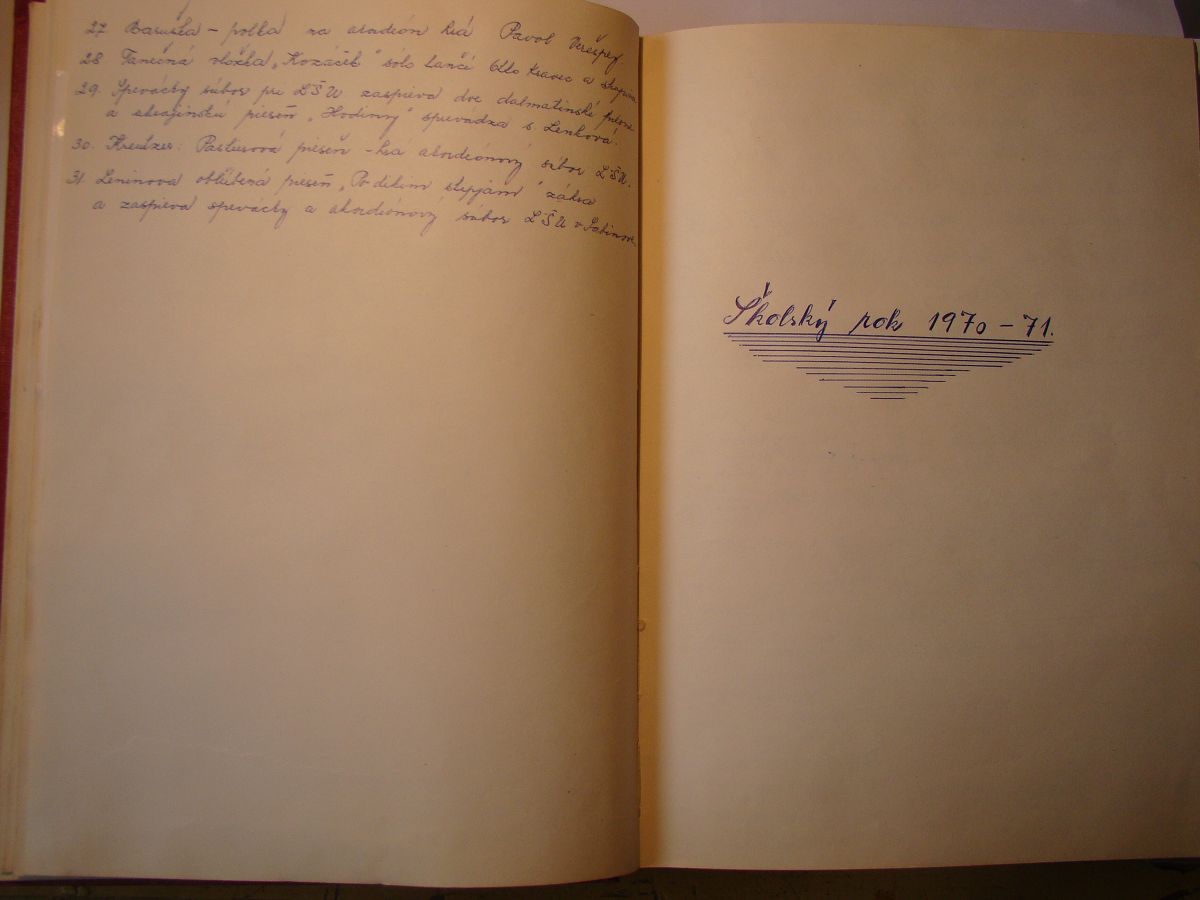 27. Baruška - polka na akordeón hrá Pavol Verešpej
28. Tanečná vložka „Kozáčik" sólo tančí Otto Kravec a skupina
29. Spevácky súbor pri ĽŠU zaspieva dve dalmatínské piesne
a ukrajinskú pieseň „Hodinny" sprevádza s. Lenková.
30. Kreutzer: Pastierová pieseň - hrá akordeónový súbor ĽŠU.
31. Leninova obľúbená pieseň „Po dikim stepjam" zahrá
a zaspieva spevácky a akordeónový súbor ĽŠU v Sabinove.
Školský rok 1970 - 71.